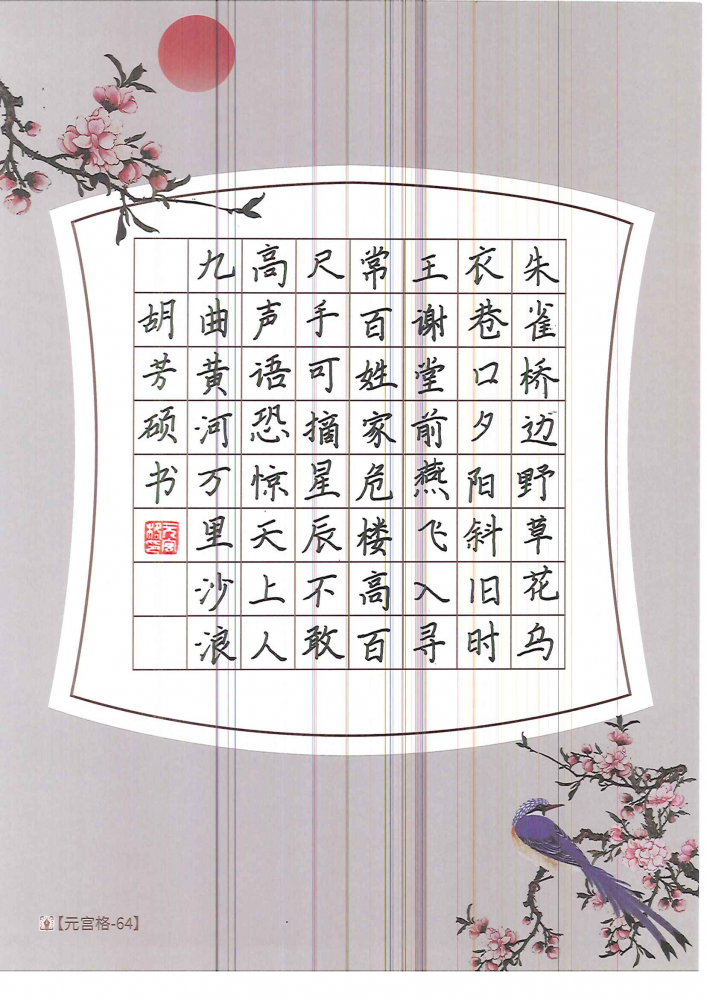 朱雀桥边野草花乌
衣巷口夕阳斜旧时
王谢堂前燕飞入寻
常百姓家危楼高百
尺手可摘星辰不敢
高声语恐惊天上人
九曲黄河万里沙浪
胡芳硕书
元宫格印
【元宫格-64】